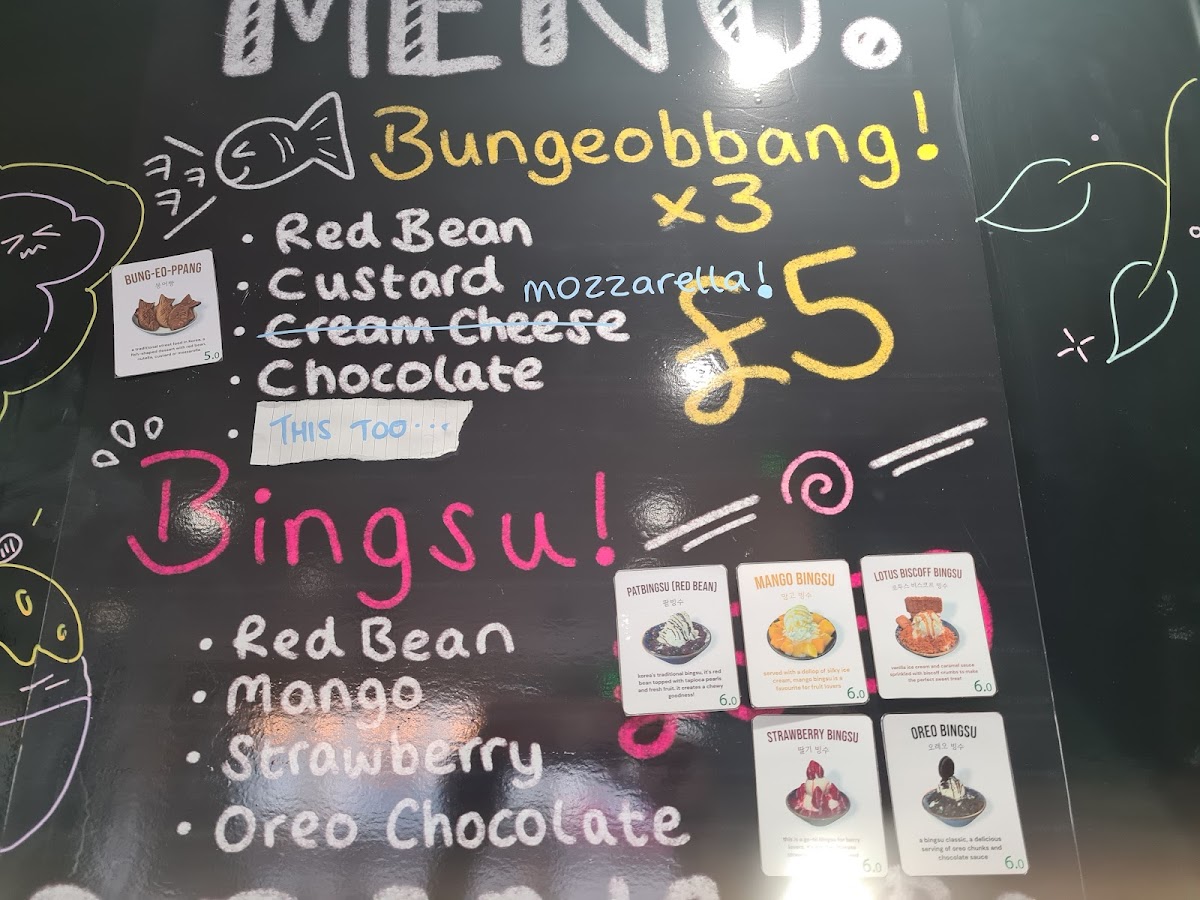 MENU.
Bungeobbang!
x3
£5
ㅋㅋㅋ
• Red Bean
• Custard
mozzarella!
• Cream Cheese
• Chocolate
• THIS TOO...
BUNG-EO-PPANG
붕어빵
5.0
Bingsu!
• Red Bean
• Mango
• Strawberry
• Oreo Chocolate
PATBINGSU [RED BEAN]
팥빙수
korea's traditional bingsu, it's red
bean topped with tapioca pearls
and fresh fruit. it creates a chewy
goodness!
6.0
MANGO BINGSU
망고 빙수
served with a dollop of silky ice
cream, mango bingsu is a
favourite for fruit lovers
6.0
LOTUS BISCOFF BINGSU
로투스 비스코프 빙수
vanilla ice cream and caramel sauce
sprinkled with biscoff crumbs to make
the perfect sweet treat
6.0
STRAWBERRY BINGSU
딸기 빙수
6.0
OREO BINGSU
오레오 빙수
a bingsu classic, a delicious
serving of oreo chunks and
chocolate sauce
6.0